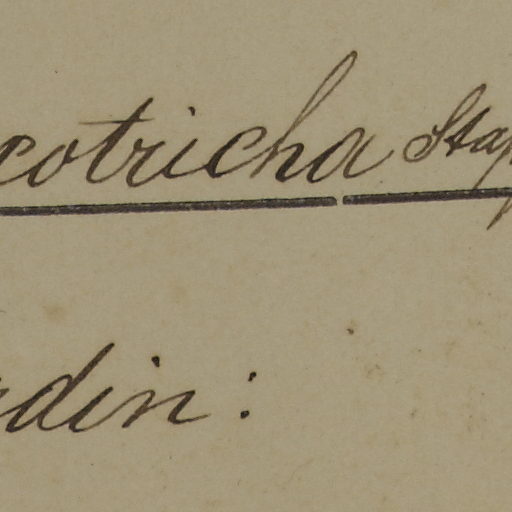 cotricha Stap
din: